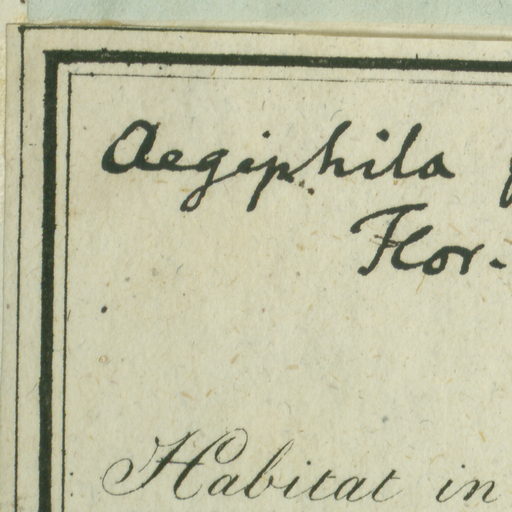 Aegiphila
Flor.
Habitat in